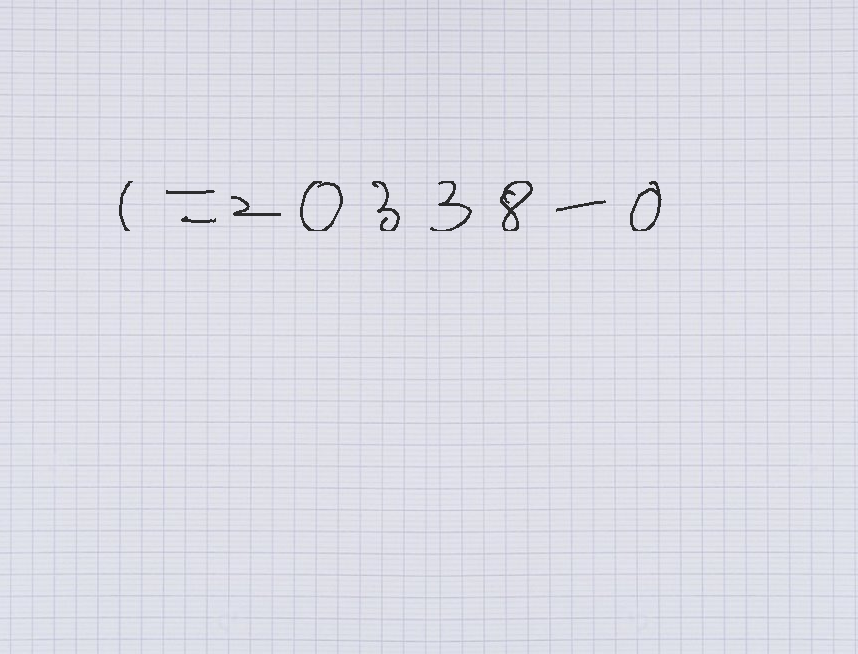 ( = 2 0 3 3 8 - 0